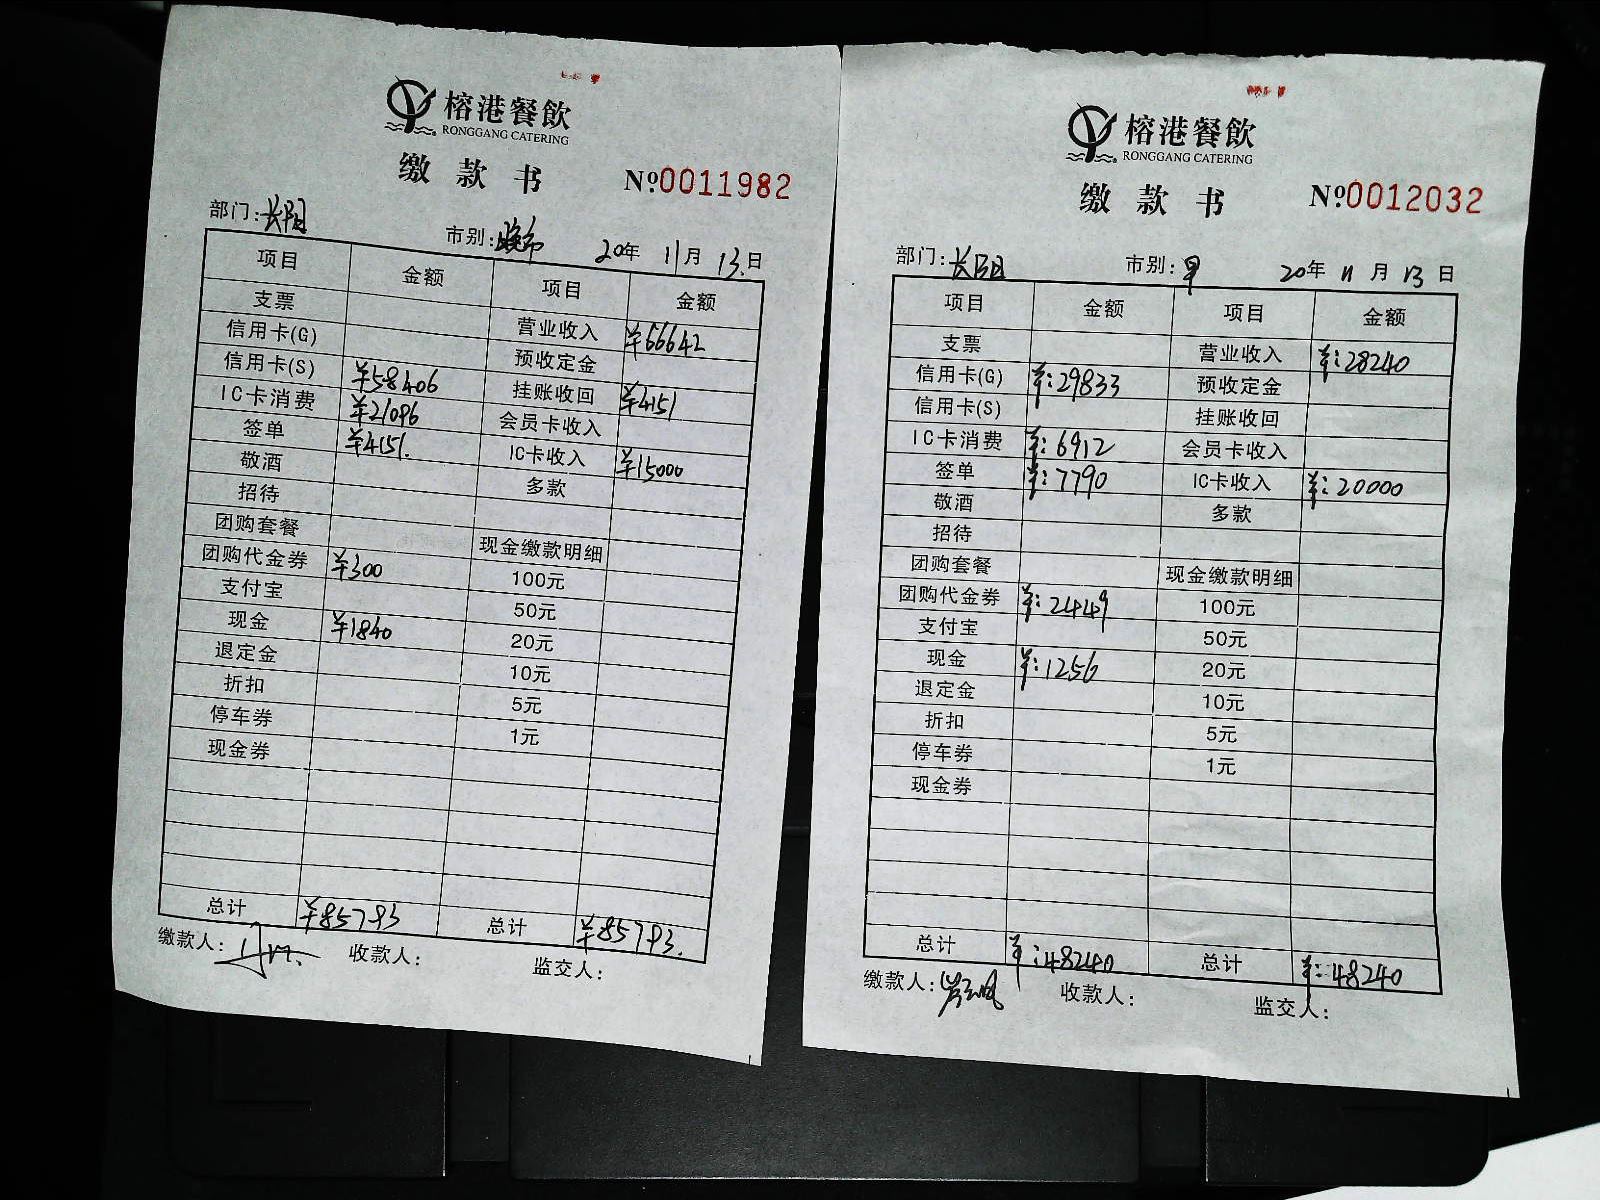 榕港餐飲
RONGGANG CATERING
缴款书 Nº0011982
部门:长阳 市别:晚市 20年 11月 13日
项目 金额 项目 金额
支票 营业收入 ¥66642
信用卡(G) 预收定金
信用卡(S) ¥58406 挂账收回 ¥4151
IC卡消费 ¥21096 会员卡收入
签单 ¥4151. IC卡收入 ¥15000
敬酒 多款
招待
团购套餐 现金缴款明细
团购代金券 ¥300 100元
支付宝 50元
现金 ¥1840 20元
退定金 10元
折扣 5元
停车券 1元
现金券
总计 ¥85793 总计 ¥85793.
缴款人: 收款人: 监交人:
榕港餐飲
RONGGANG CATERING
缴款书 Nº0012032
部门:长阳 市别:早 20年 11月 13日
项目 金额 项目 金额
支票 营业收入 ¥:28240
信用卡(G) ¥:29833 预收定金
信用卡(S) 挂账收回
IC卡消费 ¥:6912 会员卡收入
签单 ¥:7790 IC卡收入 ¥:20000
敬酒 多款
招待
团购套餐 现金缴款明细
团购代金券 ¥:2449 100元
支付宝 50元
现金 ¥:1256 20元
退定金 10元
折扣 5元
停车券 1元
现金券
总计 ¥:48240 总计 ¥:48240
缴款人: 收款人: 监交人: